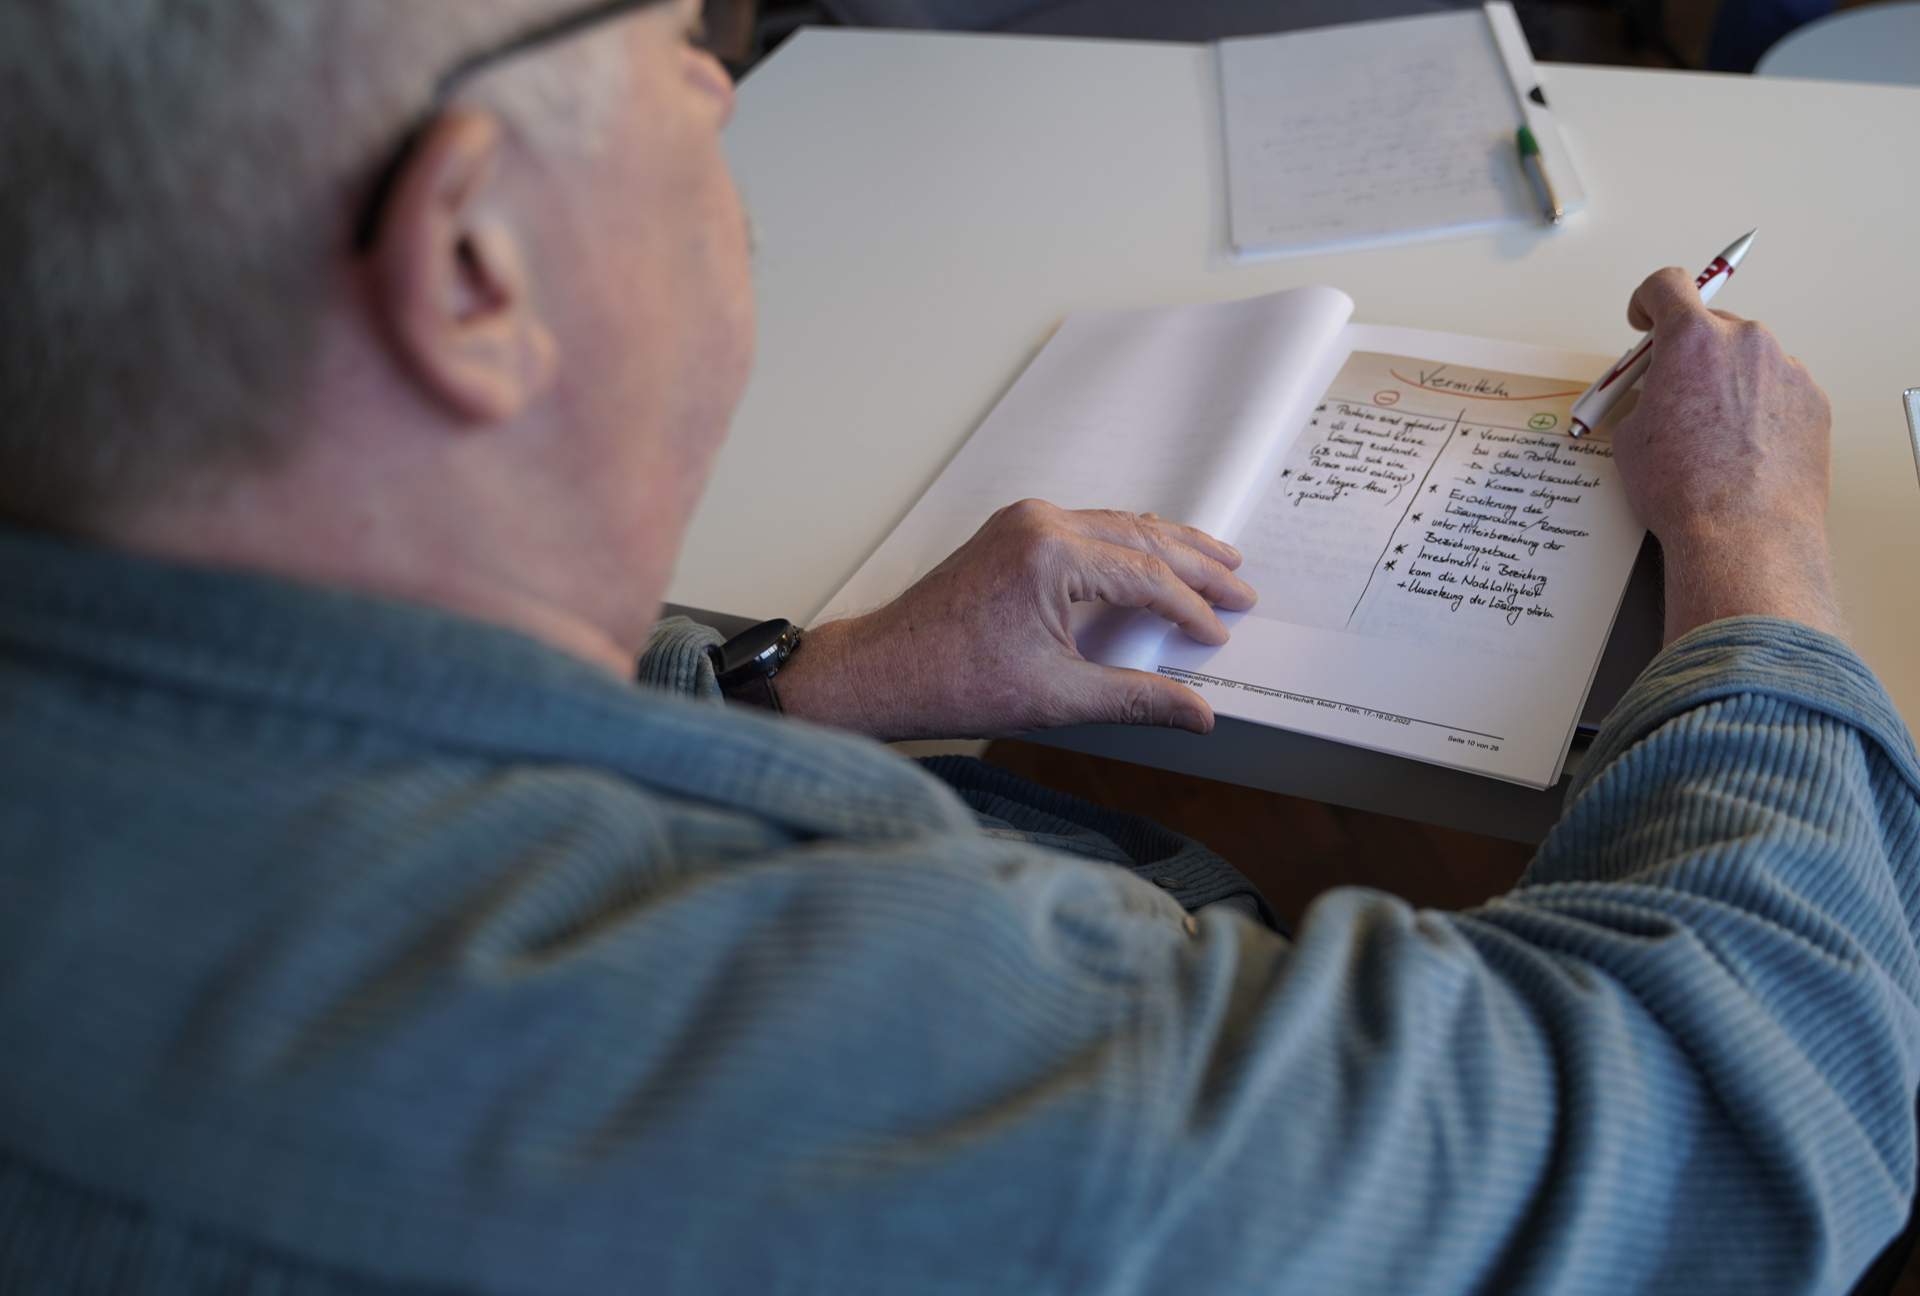 Vermitteln
⊖
* Parteien sind gefordert
* uU kommt keine
Lösung zustande
(z.B. wenn sich eine
Person nicht erklärt)
* (der „längere Atem"
„gewinnt"
⊕
* Verantwortung verbleibt
bei den Parteien
→ Selbstwirksamkeit
→ Konsens steigernd
* Erweiterung des
Lösungsraums/Ressourcen
* unter Miteinbeziehung der
Beziehungsebene
* Investment in Beziehung
* kann die Nachhaltigkeit
+ Umsetzung der Lösung stärken
Mediationsausbildung 2022 – Schwerpunkt Wirtschaft, Modul 1, Köln, 17.-19.02.2022
Mediation Fest
Seite 10 von 28